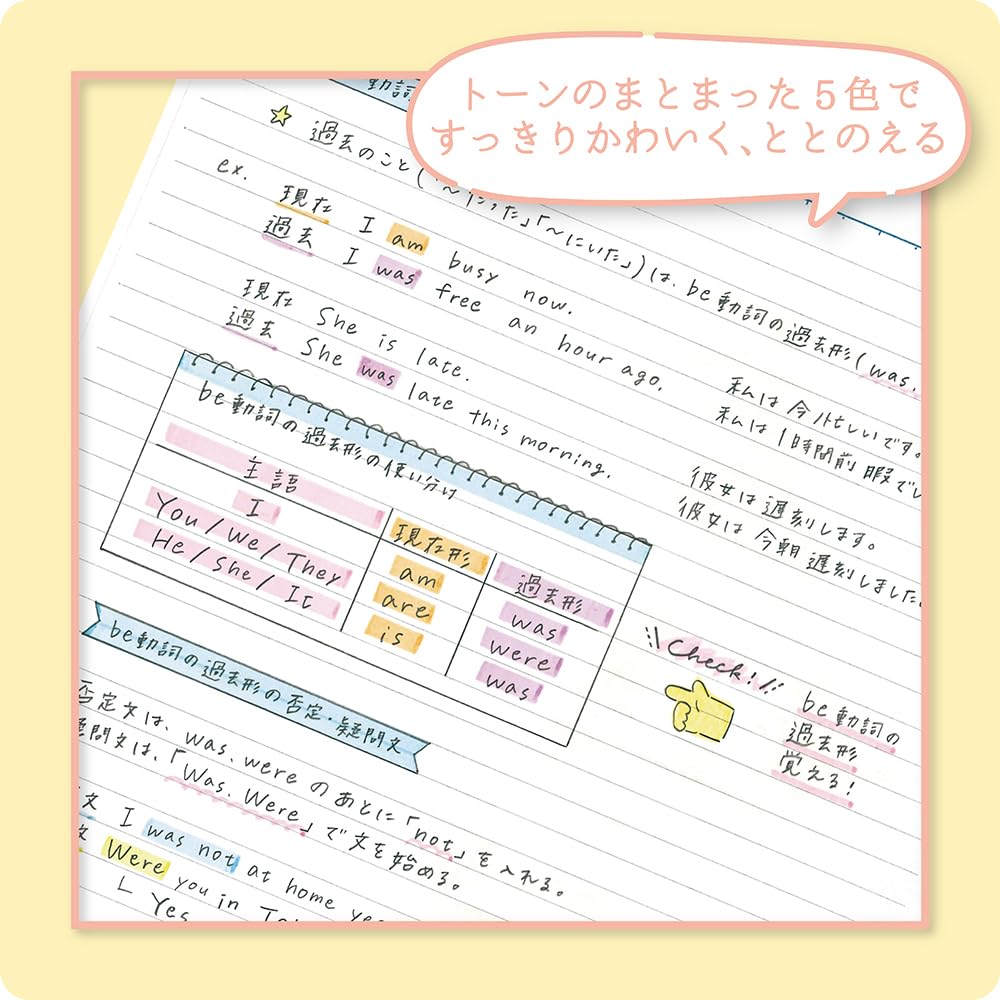 トーンのまとまった5色で
すっきりかわいく、ととのえる
動詞
過去のこと(「〜だった」「〜にいた」)は、be動詞の過去形(was.
ex.
現在 I am busy now.
私は今忙しいです。
過去 I was free an hour ago.
私は1時間前暇でし
現在 She is late.
彼女は遅刻します。
過去 She was late this morning.
彼女は今朝遅刻しました。
be動詞の過去形の使い分け
主語 現在形 過去形
I am was
You/We/They are were
He/She/It is was
Check!
be動詞の
過去形
覚える!
be動詞の過去形の否定・疑問文
否定文は、was.wereのあとに「not」を入れる。
疑問文は、「Was.Were」で文を始める。
文 I was not at home yes
文 Were you in To
Yes